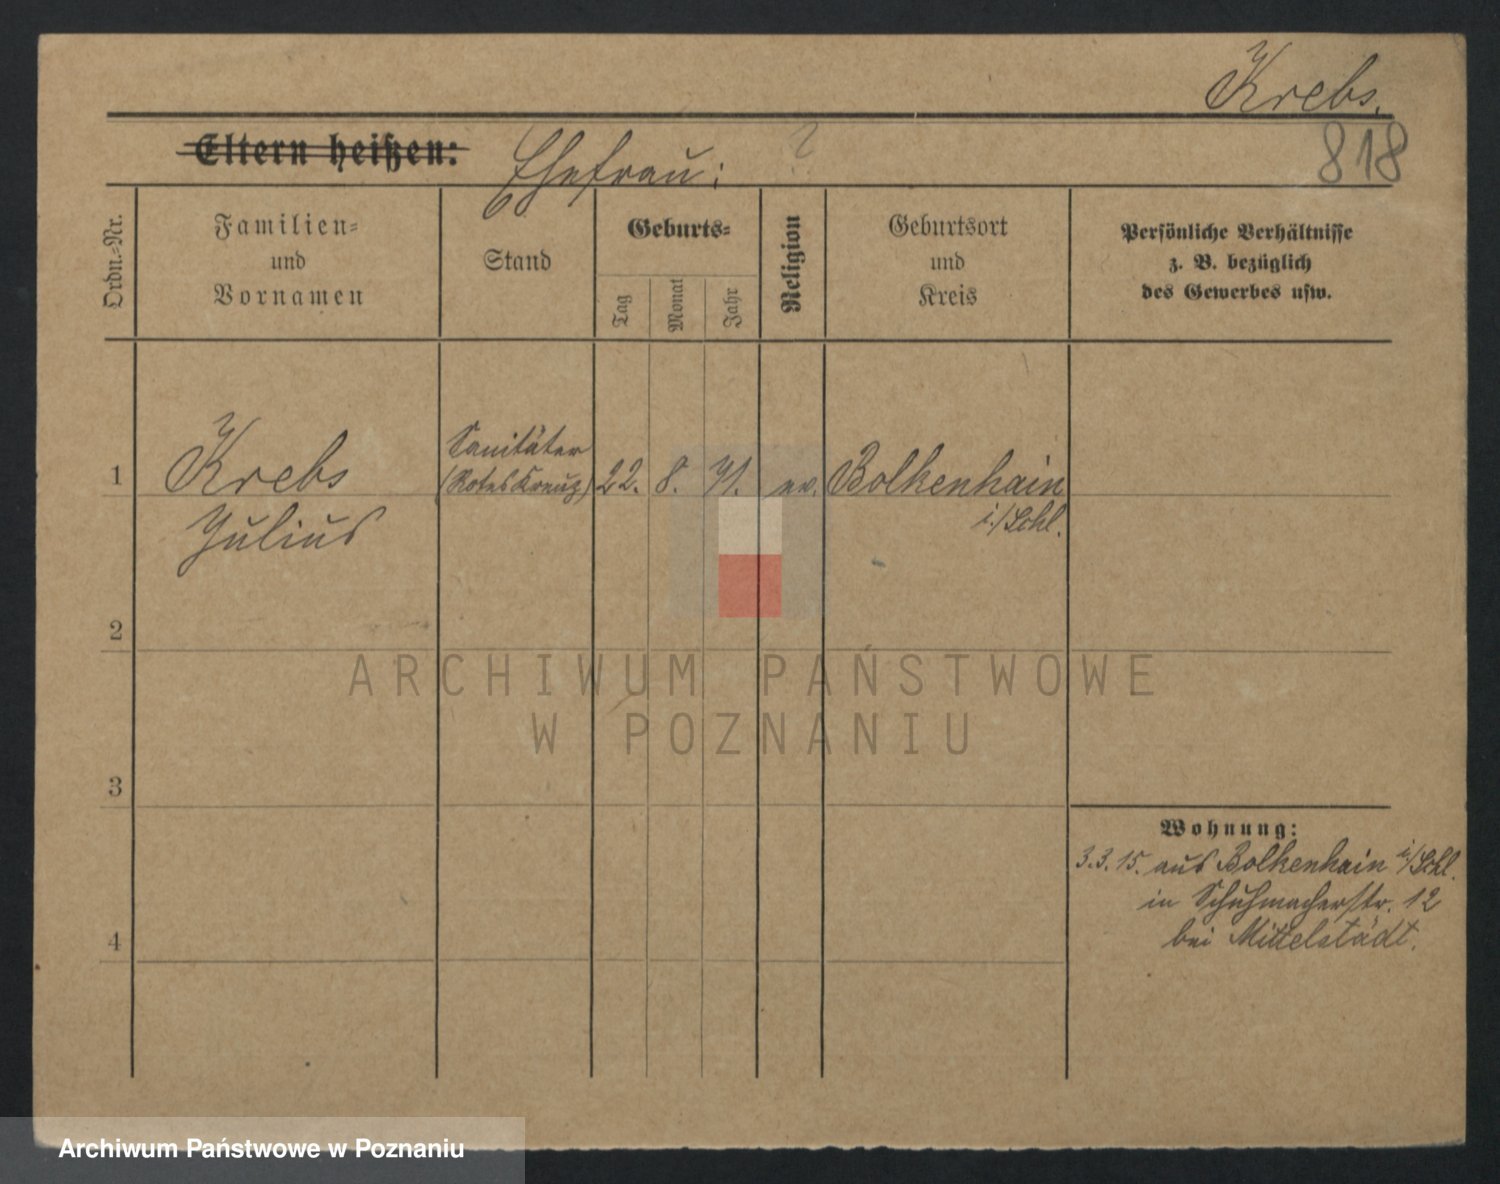 Krebs.
818
Eltern heißen: Ehefrau: ?
Ordn.-Nr.
Familien-
und
Vornamen
Stand
Geburts-
Tag
Monat
Jahr
Religion
Geburtsort
und
Kreis
Persönliche Verhältnisse
z. B. bezüglich
des Gewerbes usw.
1
Krebs
Julius
Sanitäter
(Rotes Kreuz)
22. 8. 71. ev. Bolkenhain
i./Schl.
2
3
4
Wohnung:
3.3.15. aus Bolkenhain i/Schl.
in Schuhmacherstr. 12
bei Mittelstädt.
ARCHIWUM PAŃSTWOWE
W POZNANIU
Archiwum Państwowe w Poznaniu